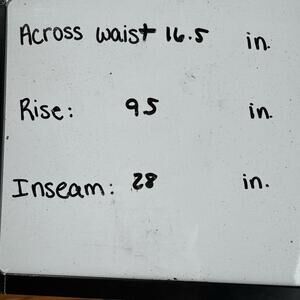 Across waist 16.5 in.
Rise: 95 in.
Inseam: 28 in.